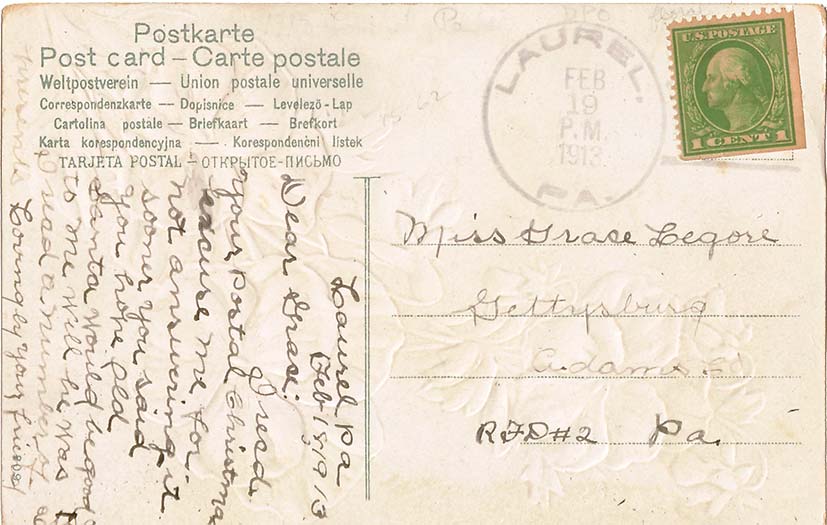 Postkarte
Post card – Carte postale
Weltpostverein — Union postale universelle
Correspondenzkarte — Dopisnice — Levelező-Lap
Cartolina postale – Briefkaart – Brefkort
Karta korespondencyjna — Korespondenčni listek
TARJETA POSTAL – ОТКРЫТОЕ-ПИСЬМО
LAUREL,
FEB
19
P.M.
1913
PA.
U.S. POSTAGE
1 CENT 1
Miss Grace Legore
Gettysburg
Adams
RFD#2 Pa.
Laurel Pa
Feb 1913
Dear Grace.
I recd.
your postal Christma
excuse me for
not answering it
sooner you said
you hope old
Santa would be good
to me well he was
I read a number of
Lovingly your